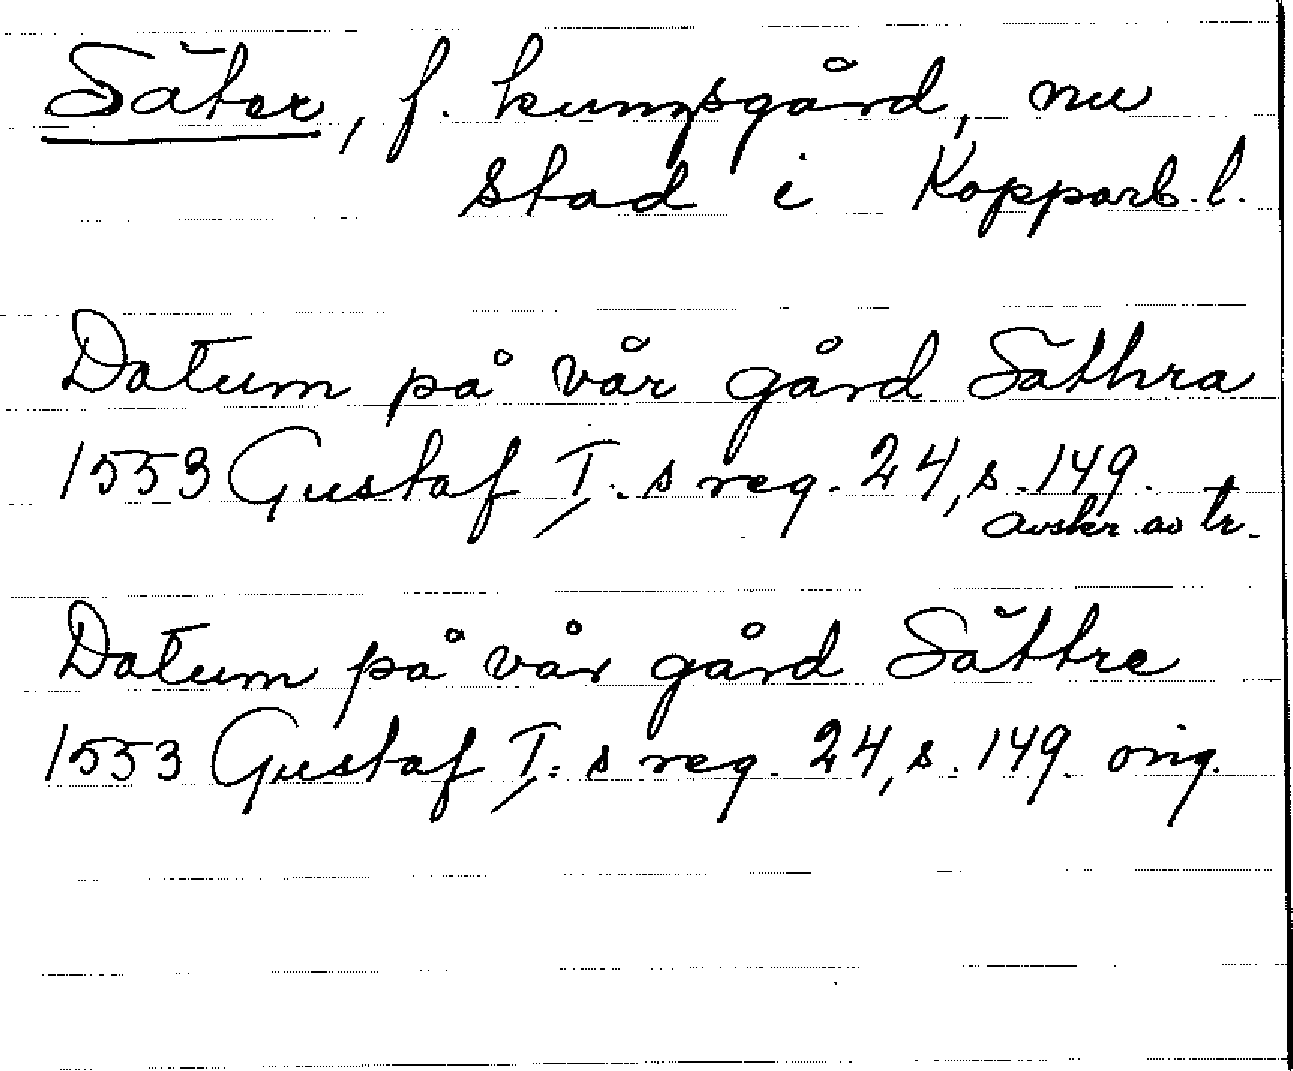 Säter, f. kungsgård, nu
stad i Kopparb. l.
Datum på vår gård Säthra
1553 Gustaf I:s reg. 24, s. 149.
avskr. av tr.
Datum på vår gård Sättre
1553 Gustaf I:s reg. 24, s. 149 orig.